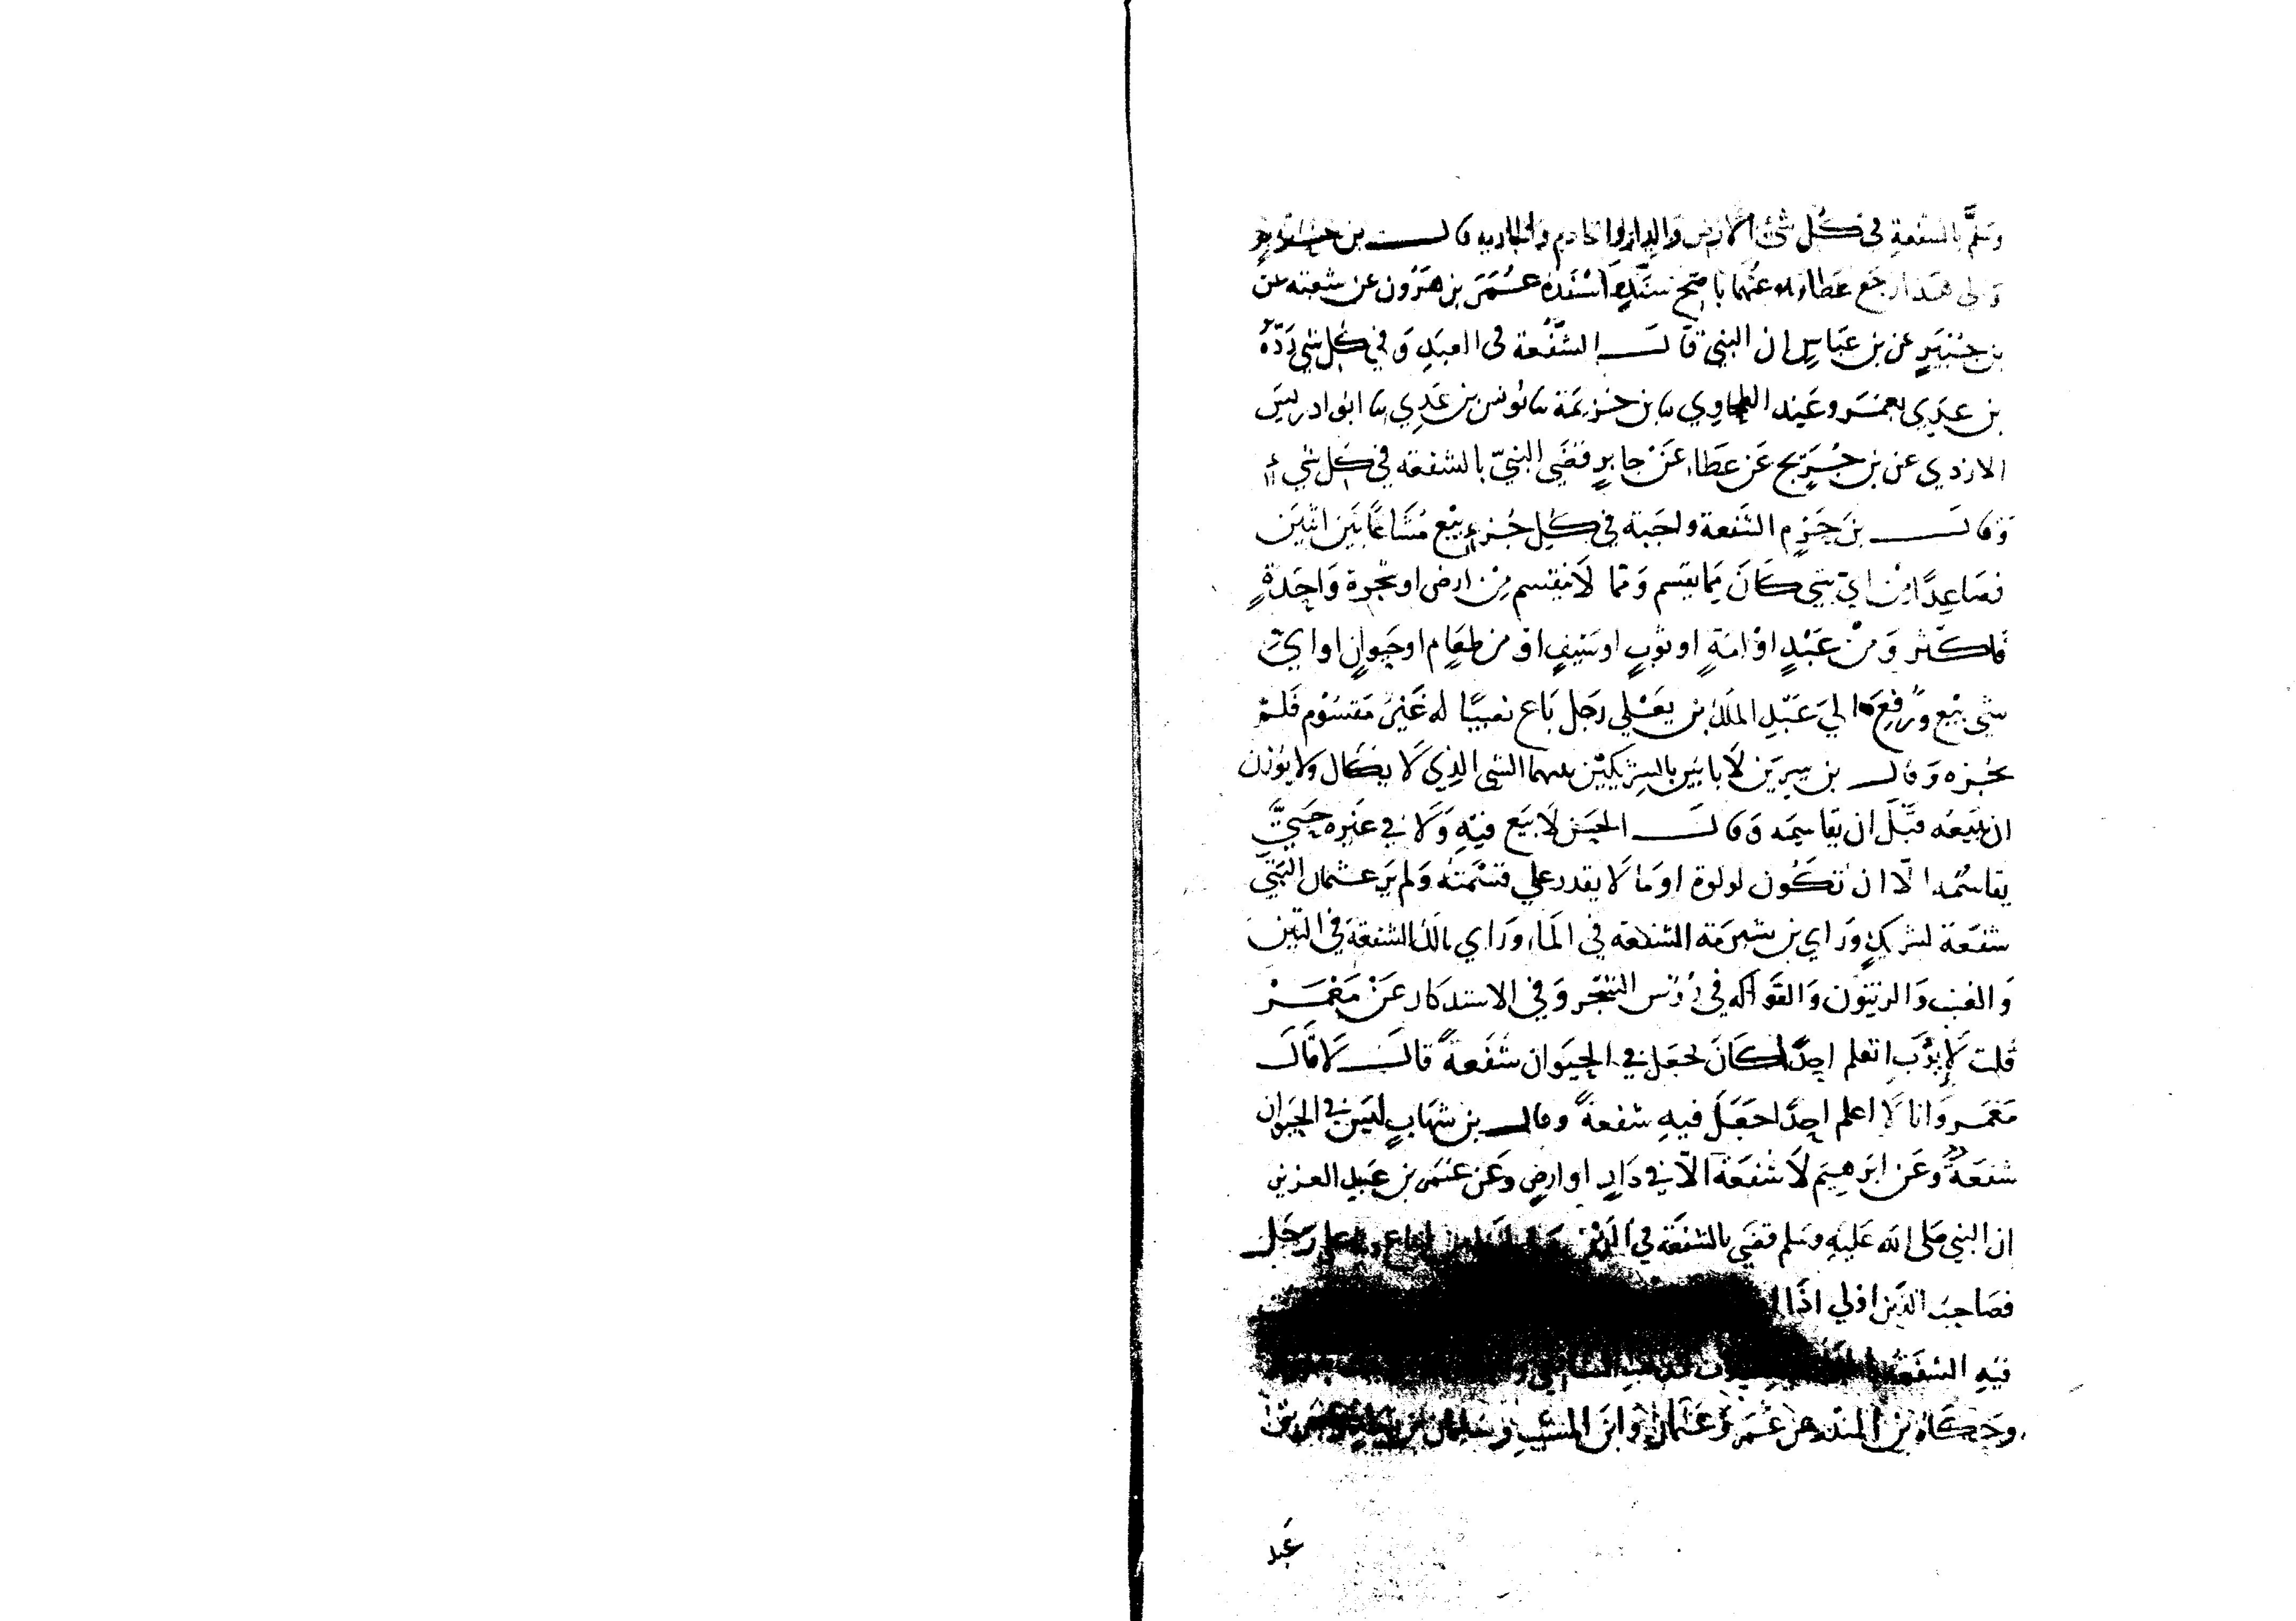 وسلم بالشفعة في كل شئ الارض والدار والخادم والجاريه قالــــ بن حزم
والى هذا رجع عطاء وله عنهما باصح سند اسنده عمر بن هرون عن شعبة عن
بن جبير عن بن عباس ان النبي قالــــ الشفعة في العبد وفي كل شي رده
بن عدي بعمر وعند الطحاوي نا بن خزيمة نا يونس بن عدي نا ابن ادريس
الازدي عن بن جريج عن عطاء عن جابر قضى النبي بالشفعه في كل شي
وقالــــ بن حزم الشفعة واجبة في كل جزء بيع مشاعا بين اثنين
فصاعدا من اي شي كان مما ينقسم ومما لا ينقسم من ارض او شجرة واحدة
فاكثر ومن عبد او امة او ثوب او سيف او من طعام او حيوان او اي
شي بيع ورفع الي عبد الملك بن يعلي رجل باع نصيبا له غير مقسوم فلم
يجزه وقالــــ بن سيرين لا باس بالشريكين بينهما الشي الذي لا يكال ولا يوزن
ان يبيعه قبل ان يقاسمه وقالــــ الحسن لا يبيع فيه ولا في غيره حتي
يقاسمه الا ان تكون لولوة او ما لا يقدر علي قسمته ولم ير عثمان البتي
شفعة لشريك وراي بن شبرمة الشفعه في الماء وراي مالك الشفعة في التين
والعنب والزيتون والفواكه في رؤس الشجر وفي الاستذكار عن معمر
قلت لايوب اتعلم احدا كان يجعل في الحيوان شفعة قالــــ لا قالــــ
معمر وانا لا اعلم احدا جعل فيه شفعة وقالــــ بن شهاب ليس في الحيوان
شفعة وعن ابرهيم لا شفعة الا في دار او ارض وعن عمر بن عبد العزيز
ان النبي صلى الله عليه وسلم قضي بالشفعة في الدين علي رجل
فصاحب الدين اولي اذا
فيه الشفعة
وحكاه بن المنذر عن عمر وعثمان وابن المسيب وسليمان بن يسار وعمر بن
عبد